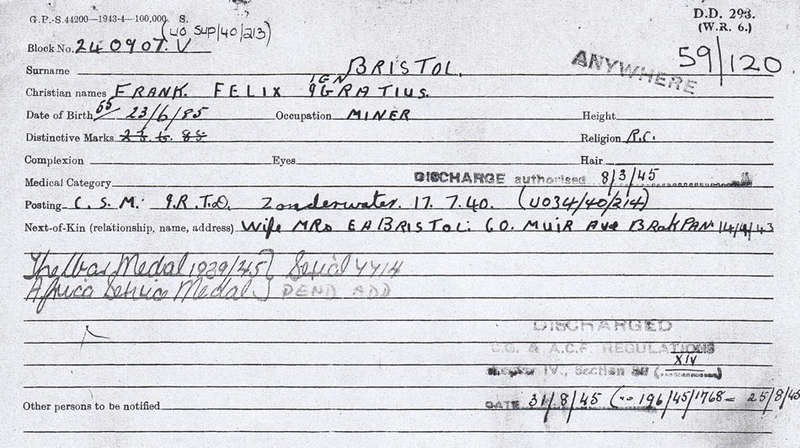 G.P.-S.44200—1943-4—100,000. S.
D.D. 293.
(W.R. 6.)
(UO SUP/40/213)
Block No. 240907.V
59/120.
Surname BRISTOL.
ANYWHERE
Christian names FRANK. FELIX IGNGRATIUS.
Date of Birth 55/ 23/6/85 Occupation MINER Height
Distinctive Marks 23. 6. 85 Religion R.C.
Complexion Eyes Hair
Medical Category DISCHARGE authorised 8/3/45
Posting C.S.M. I.R.T.D. Zonderwater. 17.7.40. (UO34/40/214)
Next-of-Kin (relationship, name, address) Wife MRS EABRISTOL: 60. MUIR AVE BRAKPAN 14/4/43
The War Medal 1939/45} Serial 4414
Africa Service Medal} PEND ADD
DISCHARGED
C.G. & A.C.F. REGULATIONS
XIV
IV., Section
Other persons to be notified
DATE 31/8/45 196/45/1768= 25/8/45